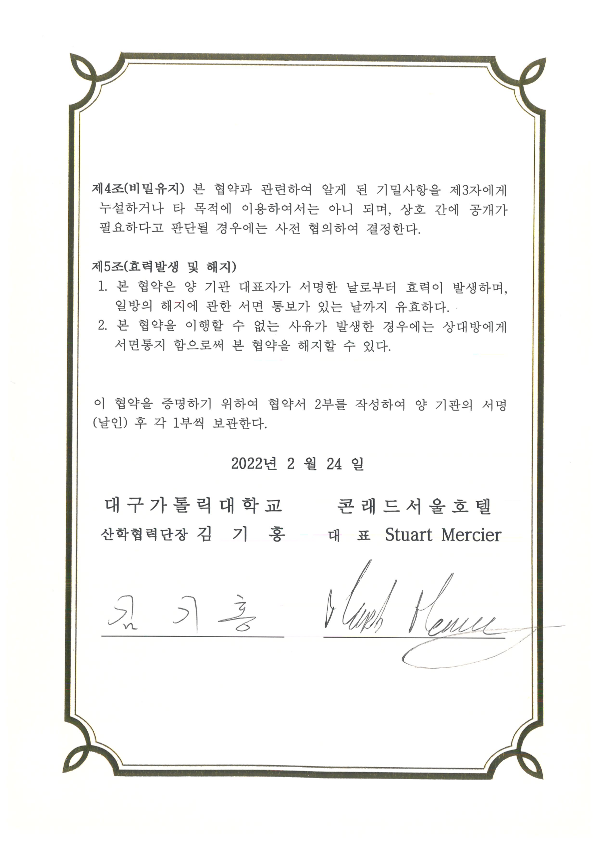 제4조(비밀유지) 본 협약과 관련하여 알게 된 기밀사항을 제3자에게
누설하거나 타 목적에 이용하여서는 아니 되며, 상호 간에 공개가
필요하다고 판단될 경우에는 사전 협의하여 결정한다.
제5조(효력발생 및 해지)
1. 본 협약은 양 기관 대표자가 서명한 날로부터 효력이 발생하며,
일방의 해지에 관한 서면 통보가 있는 날까지 유효하다.
2. 본 협약을 이행할 수 없는 사유가 발생한 경우에는 상대방에게
서면통지 함으로써 본 협약을 해지할 수 있다.
이 협약을 증명하기 위하여 협약서 2부를 작성하여 양 기관의 서명
(날인) 후 각 1부씩 보관한다.
2022년 2 월 24 일
대구가톨릭대학교 콘래드서울호텔
산학협력단장 김 기 홍 대 표 Stuart Mercier
김 기 홍